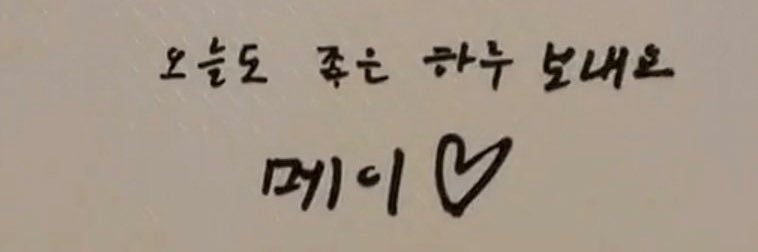 오늘도 좋은 하루 보내요
메이♡